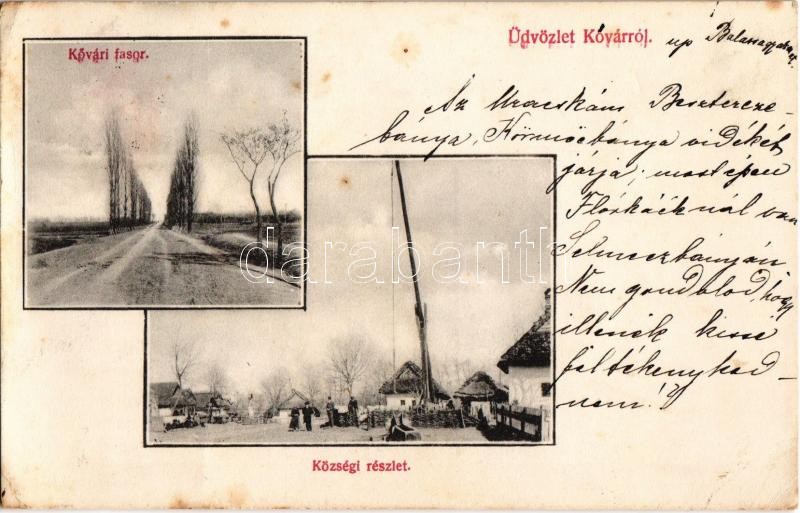 Kővári fasor.
Üdvözlet Kővárról.
up Balassagyarmat
Az Uracskám Besztercze-
bánya, Körmöcbánya vidékét
járja; most épen
Flóskáéknál van
Selmeczbányán
Nem gondolod, hogy
illenék kissé
féltékenyked-
nem!
darabanth
Községi részlet.